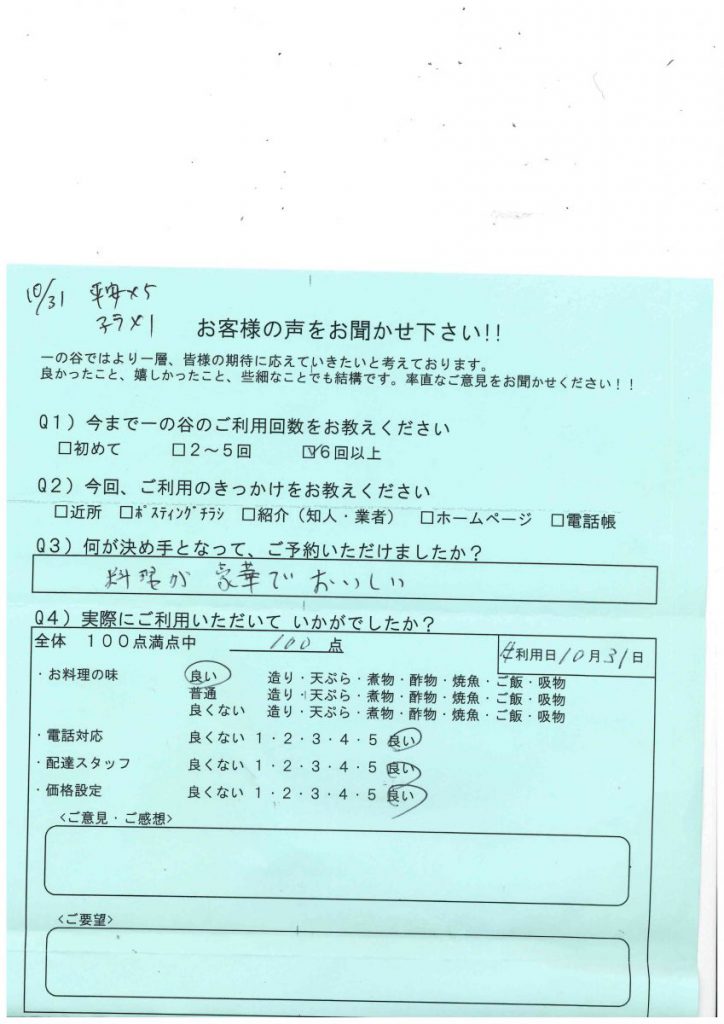 10/31 平安×5
お客様の声をお聞かせ下さい!!
一の谷ではより一層、皆様の期待に応えていきたいと考えております。
良かったこと、嬉しかったこと、些細なことでも結構です。率直なご意見をお聞かせください!!
Q1)今まで一の谷のご利用回数をお教えください
□初めて □2~5回 ☑6回以上
Q2)今回、ご利用のきっかけをお教えください
□近所 □ポスティングチラシ □紹介(知人・業者) □ホームページ □電話帳
Q3)何が決め手となって、ご予約いただけましたか?
料理が豪華でおいしい
Q4)実際にご利用いただいて いかがでしたか?
全体 100点満点中 100 点
利用日10月31日
・お料理の味 良い 造り・天ぷら・煮物・酢物・焼魚・ご飯・吸物
普通 造り・天ぷら・煮物・酢物・焼魚・ご飯・吸物
良くない 造り・天ぷら・煮物・酢物・焼魚・ご飯・吸物
・電話対応 良くない 1・2・3・4・5 良い
・配達スタッフ 良くない 1・2・3・4・5 良い
・価格設定 良くない 1・2・3・4・5 良い
<ご意見・ご感想>
<ご要望>